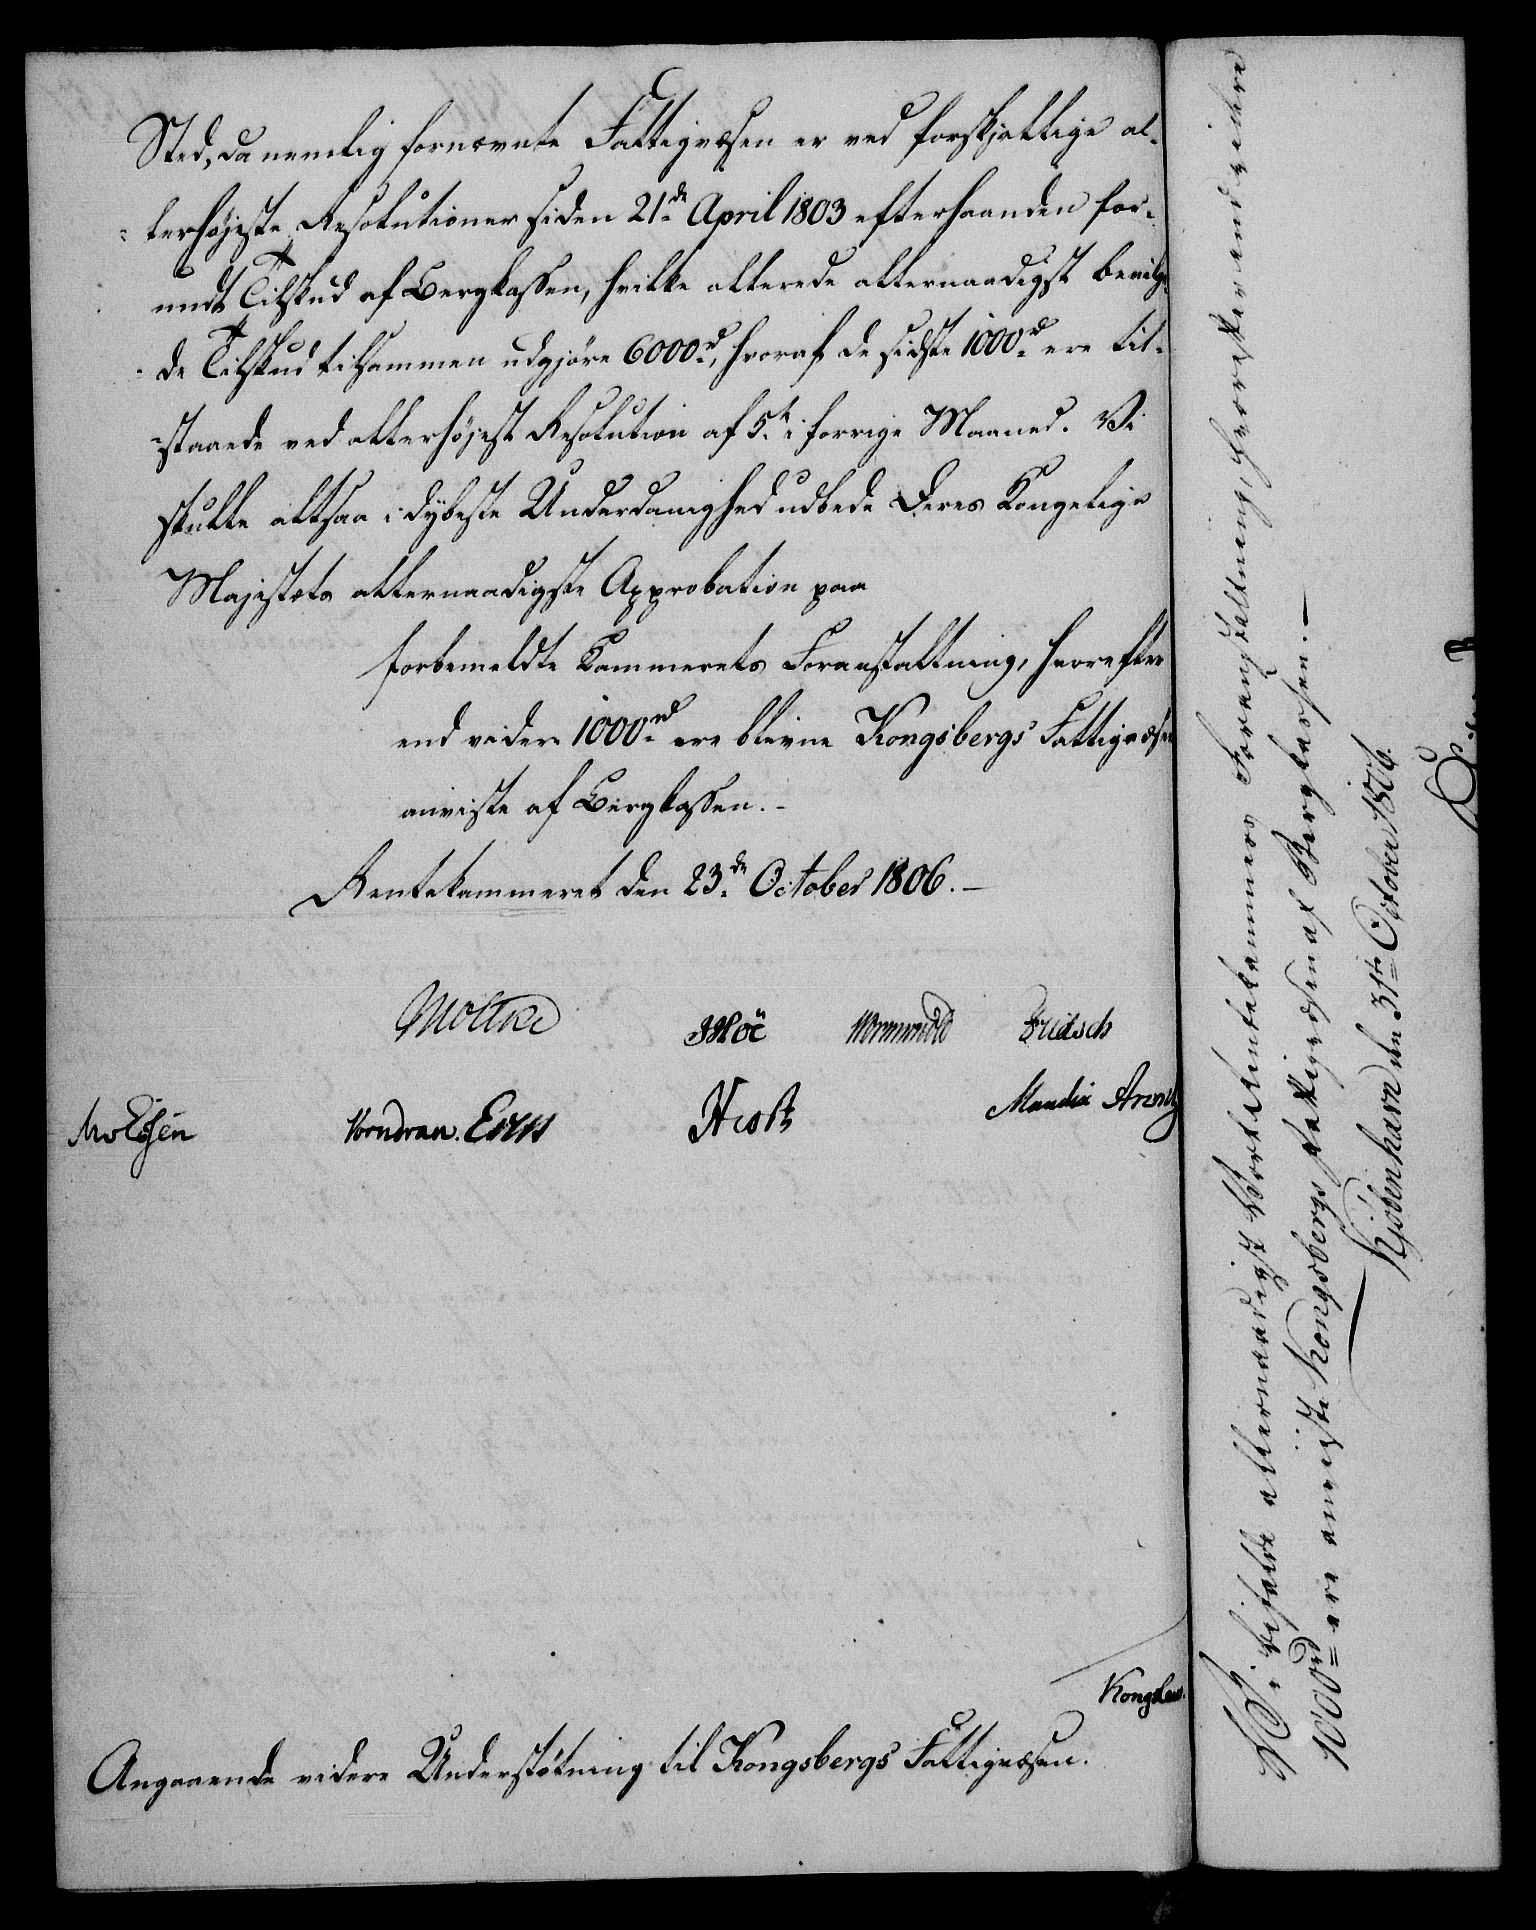 Sted, da nemlig fornævnte Fattigvæsen er ved forskjællige al-
lerhøjeste Resolutioner siden 21de April 1803 efterhaanden for-
undt Tilskud af Bergkassen, hvilke allerede allernaadigst bevilge-
de Tilskud tilsammen udgjøre 6000rd, hvoraf de sidste 1000rd ere til-
staaede ved allerhøjest Resolution af 5te i forrige Maaned. Vi
skulle altsaa i dybeste Underdanighed udbede Deres Kongelige
Majestets allernaadigste Approbation paa
forbemeldte Kammerets Foranstaltning, hvorefter
end videre 1000rd ere blevne Kongsbergs Fattigvæsen
anviste af Bergkassen.-
Rentekammeret den 23de October 1806.-
Moltke
Wormskiold
Vorndran.
Angaaende videre Understøtning til Kongsbergs Fattigvæsen.
Vi bifalde allernaadigst Vort Rentekammers Foranstaltning, hvorefter end videre
1000rd ere anviste Kongsbergs Fattigvæsen af Bergkassen.-
Kjöbenhavn den 31te October 1806.